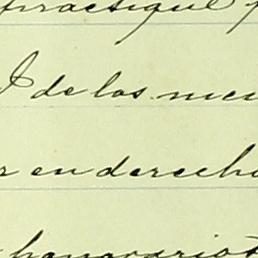 practique p
I de los meu
r en derecho
honorario